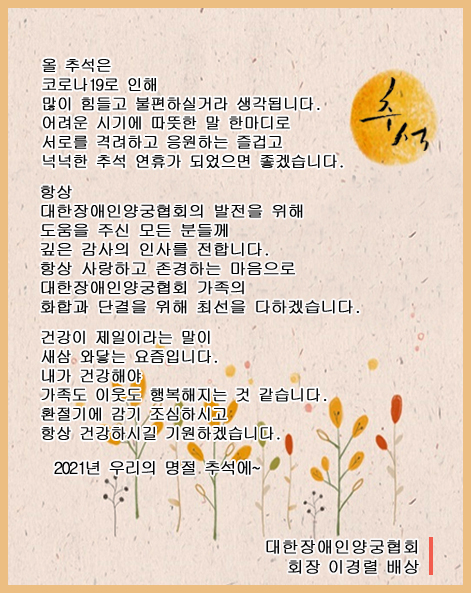 올 추석은
코로나19로 인해
많이 힘들고 불편하실거라 생각됩니다.
어려운 시기에 따뜻한 말 한마디로
서로를 격려하고 응원하는 즐겁고
넉넉한 추석 연휴가 되었으면 좋겠습니다.
추석
항상
대한장애인양궁협회의 발전을 위해
도움을 주신 모든 분들께
깊은 감사의 인사를 전합니다.
항상 사랑하고 존경하는 마음으로
대한장애인양궁협회 가족의
화합과 단결을 위해 최선을 다하겠습니다.
건강이 제일이라는 말이
새삼 와닿는 요즘입니다.
내가 건강해야
가족도 이웃도 행복해지는 것 같습니다.
환절기에 감기 조심하시고
항상 건강하시길 기원하겠습니다.
2021년 우리의 명절 추석에~
대한장애인양궁협회
회장 이경렬 배상